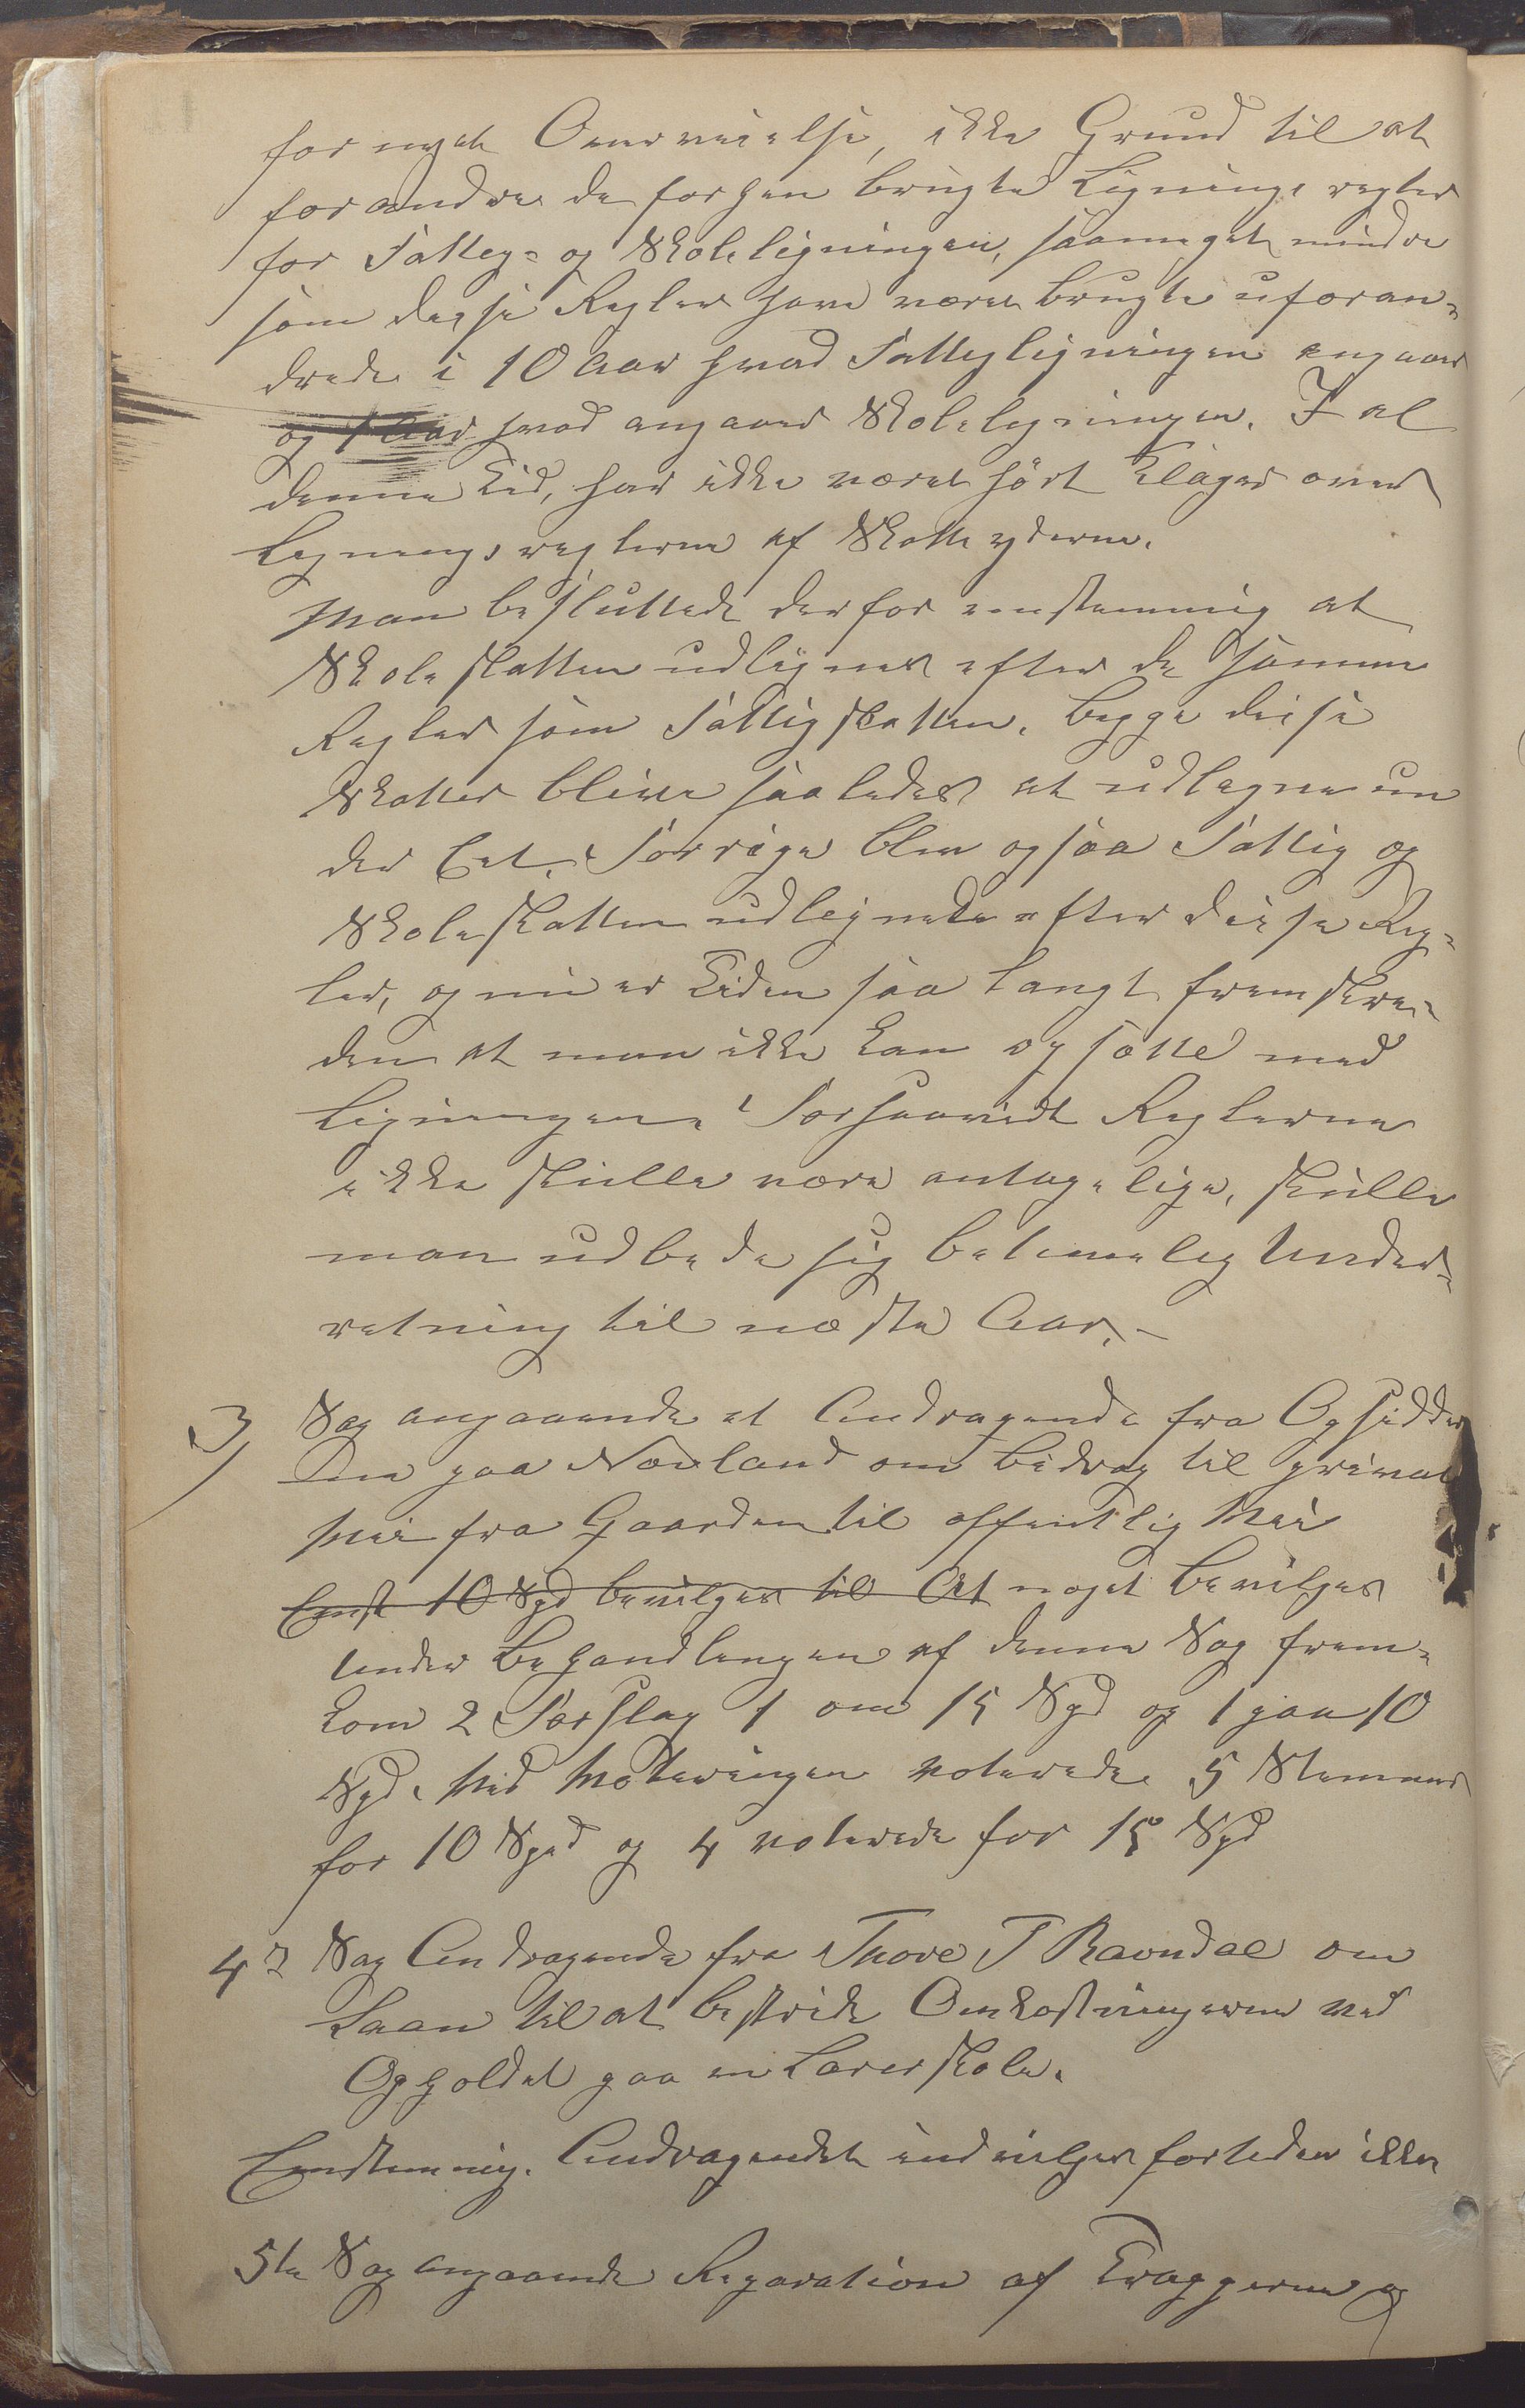 fornyet Overveielse, ikke Grund til at
forandre de forhen brugte Lignings regler
for Fattig- og Skoleligningen, saameget mindre
som disse Regler have været brugte uforan-
drede i 10 Aar hvad Fattigligningen angaar
og 1 Aar hvad angaar Skoleligningen. I al
denne Tid, har ikke været hørt Klager over
Ligningsreglerne af Skatteyderne.
Man besluttede derfor eenstemmig at
Skoleskatten udlignes efter de samme
Regler som Fattigskatten. Begge disse
Skatter blive saaledes at udlignes un
der Eet. Forrige blev ogsaa Fattig og
Skoleskatten udlignede efter disse Reg-
ler, og nu er Tiden saa langt fremskre-
den at man ikke kan opsætte med
Ligningen. Forsaavidt Reglerne
ikke skulle være antagelige, skulle
man udbede sig betimelig Under-
retning til næste Aar.-
3) Sag angaaende et Andragende fra Opsidder
ne paa Norland om Bidrag til privat
Vei fra Gaarden til offentlig Vei
Enst 10 Spd bevilges til At noget bevilges
Under Behandlingen af denne Sag frem-
kom 2 Forslag 1 om 15 Spd og 1 paa 10
Spd. Ved Voteringen voterede 5 Stemmer
for 10 Spd og 4 voterede for 15 Spd
4de Sag Andragende fra Thore T Ravndal om
Laan til at bestride Omkostningerne ved
Opholdet paa en Lærerskole.
Eenstemmig. Andragendet indvilges fortiden ikke
5te Sag angaaende Reparation af Trapperne og